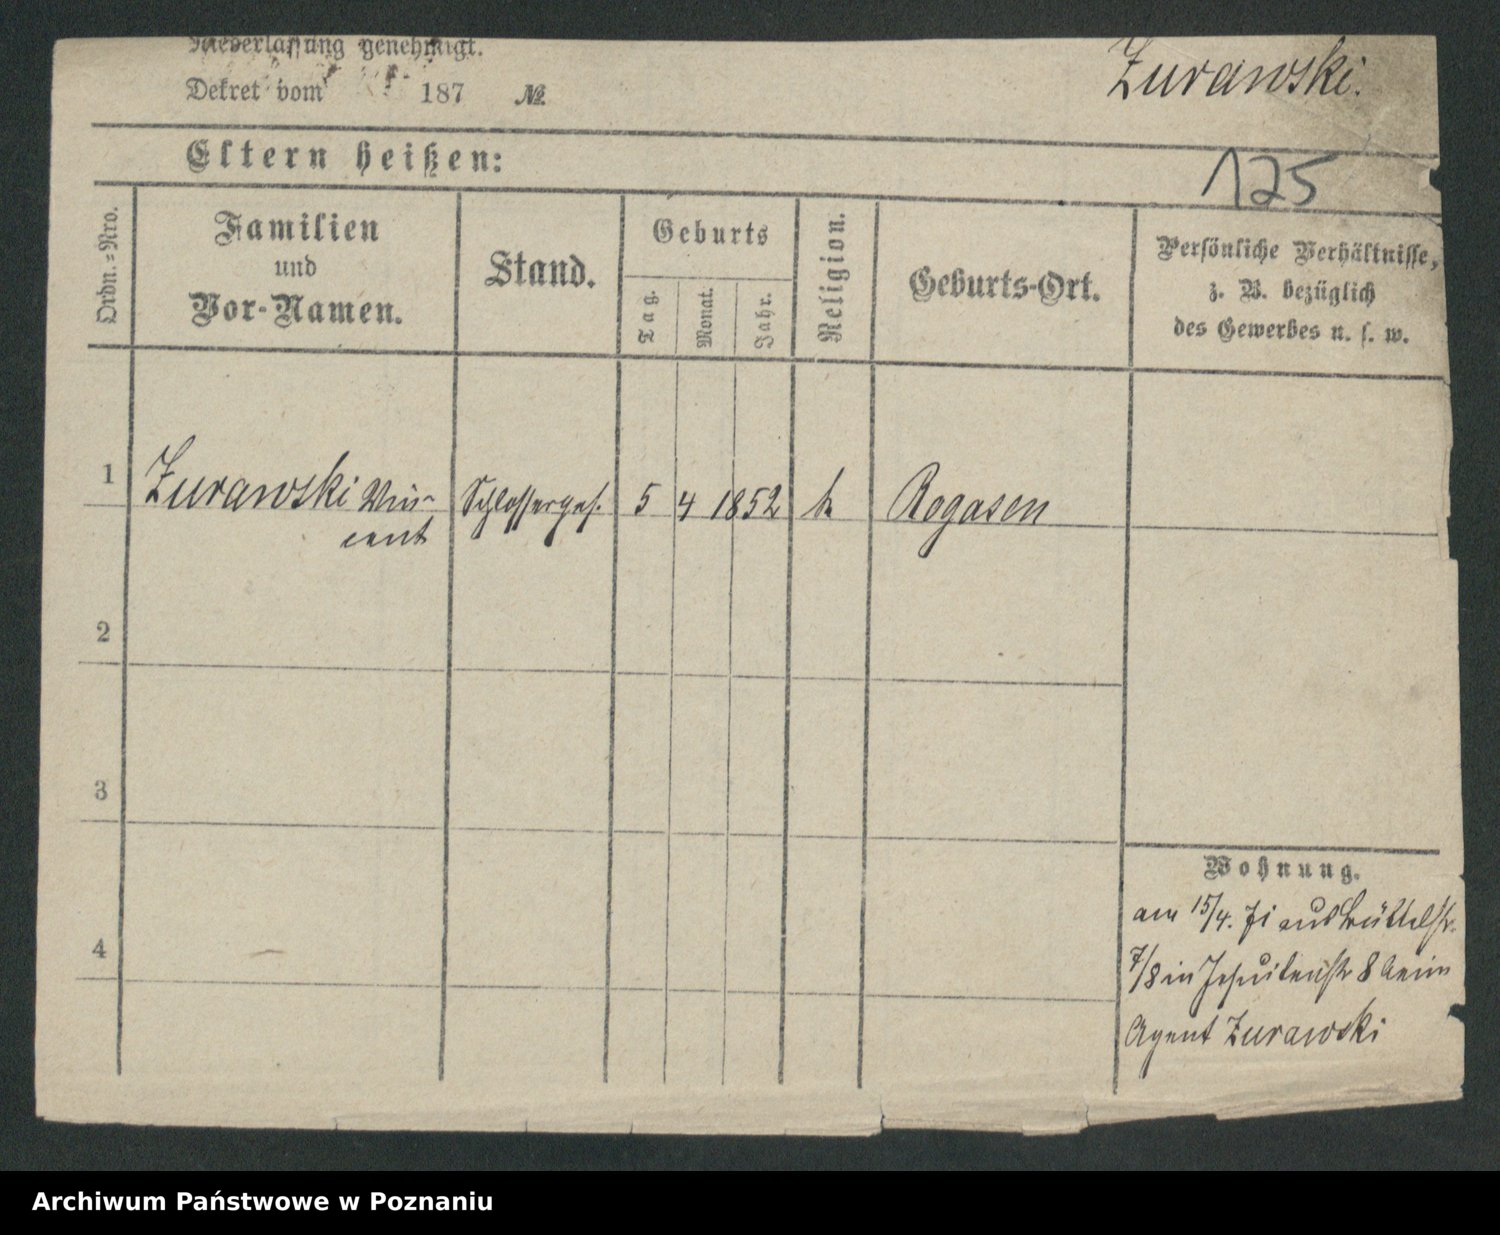 Niederlassung genehmigt.
Zurawski.
Dekret vom 187 №
125
Eltern heißen:
Ordn.=Nro.
Familien
und
Vor-Namen.
Stand.
Geburts
Tag.
Monat.
Jahr.
Religion.
Geburts-Ort.
Persönliche Verhältnisse,
z. B. bezüglich
des Gewerbes u. s. w.
1 Zurawski Vin-
cent
Schlosserges. 5 4 1852 k Rogasen
2
3
4
Wohnung.
am 15/4. 71 aus Büttelstr.
7/8 in Jesuitenstr 8 beim
Agent Zurawski
Archiwum Państwowe w Poznaniu